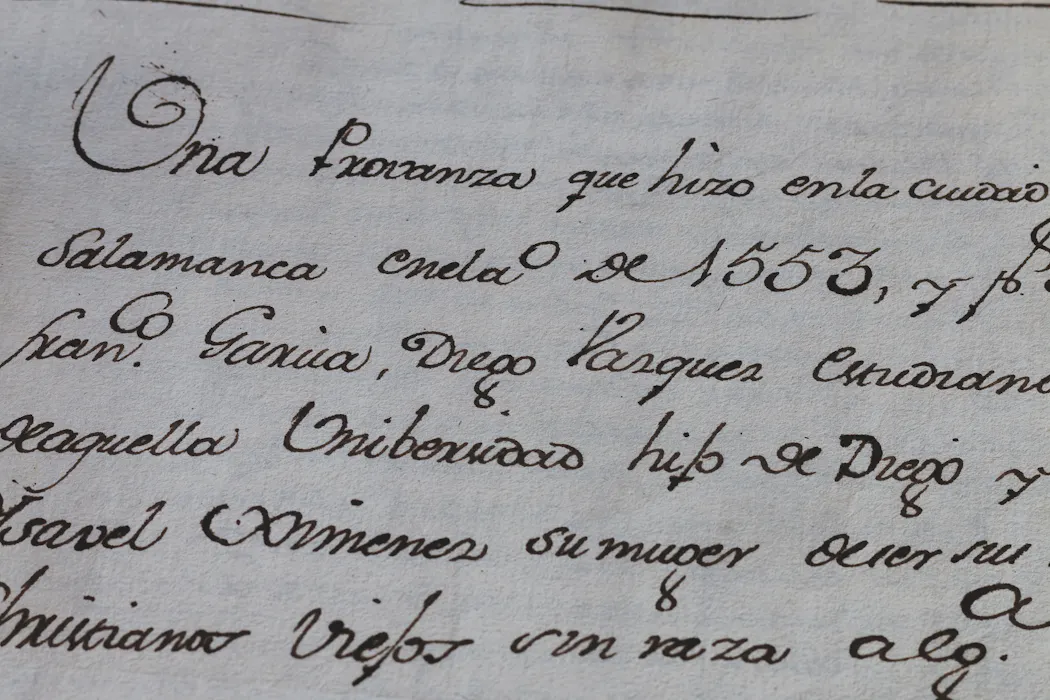 Una Provanza que hizo enla ciudad
Salamanca enel aº de 1553, y p.
Franco. Garcia, Diego Vazquez Estudian
deaquella Unibersidad hijo de Diego y
Ysavel Ximenez su muger de ser sus
Christianos Viejos sin raza alga.